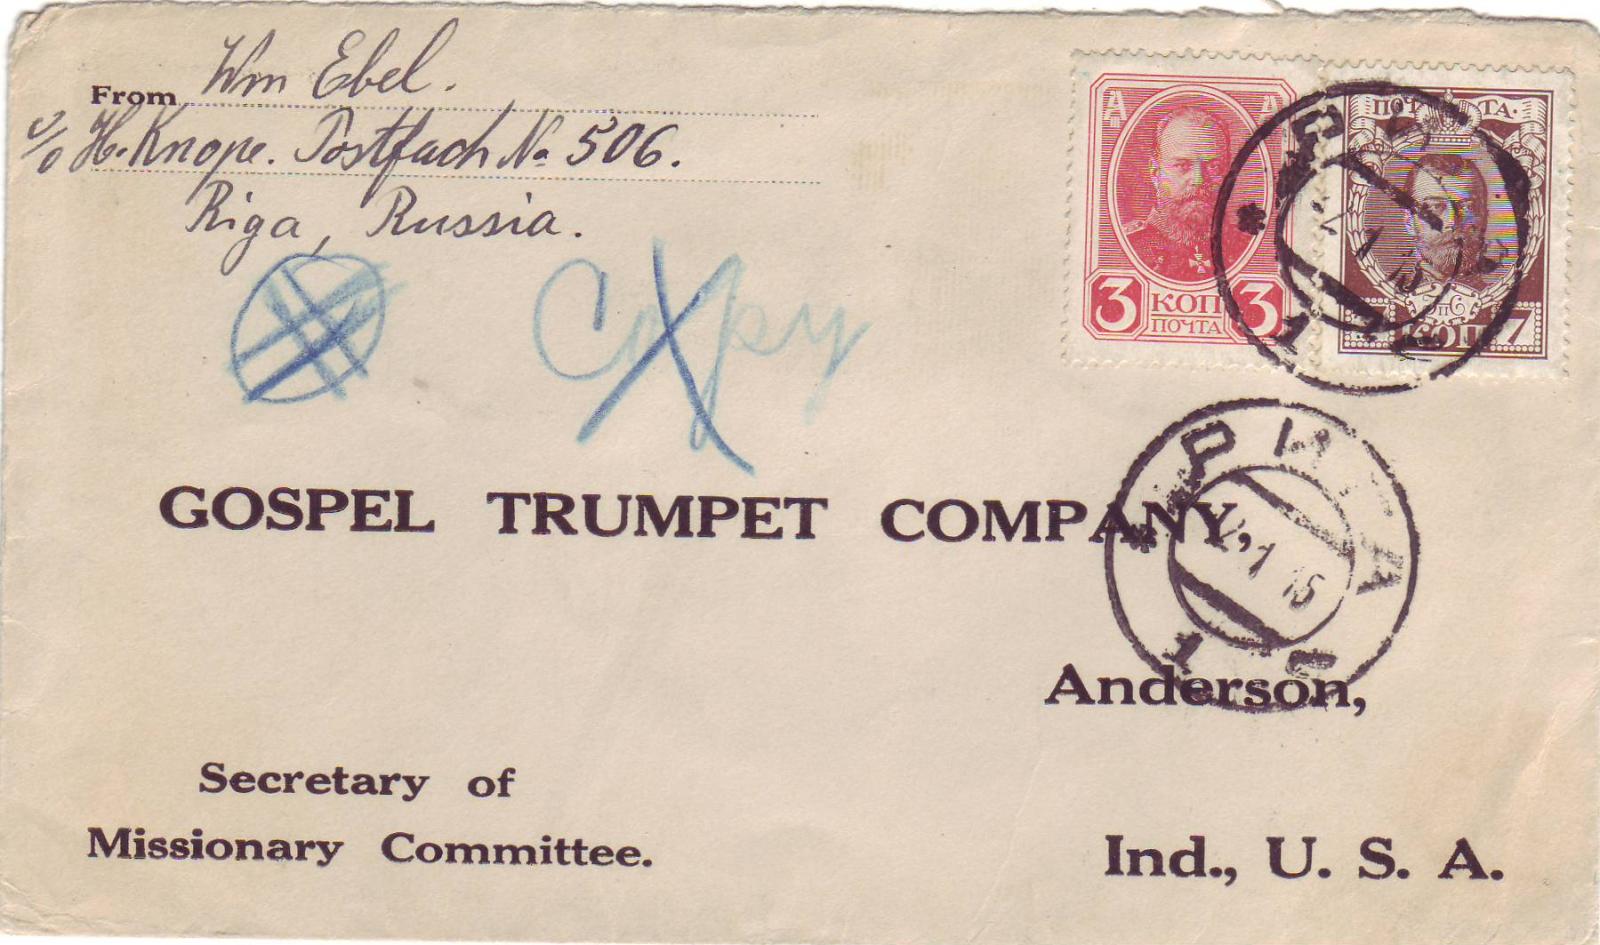 From Wm Ebel.
c/o H. Knope. Postfach No. 506.
Riga, Russia.
Copy
А А
3 КОП 3
ПОЧТА
ПОЧТА.
КОП 7
РИГА
1
РИГА
1 15
1
GOSPEL TRUMPET COMPANY,
Anderson,
Secretary of
Missionary Committee.
Ind., U. S. A.